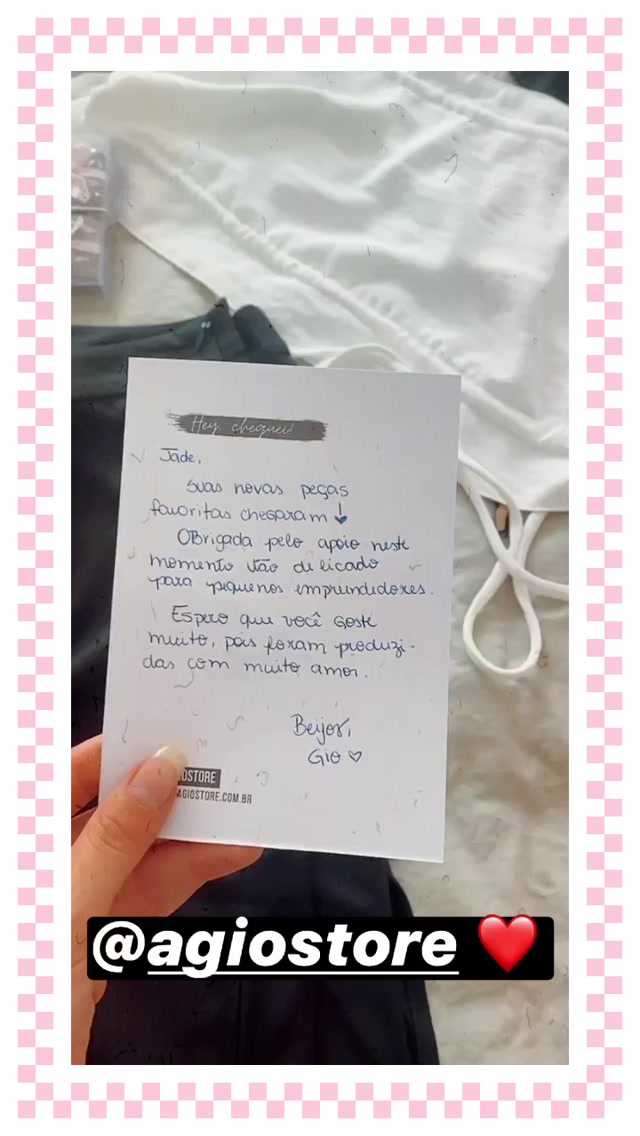 Hey, cheguei!
Jade,
Suas novas peças
favoritas chegaram
Obrigada pelo apoio neste
momento tão delicado
para pequenos empreendedores.
Espero que você goste
muito, pois foram produzi-
das com muito amor.
Beijos,
Gio ♡
OSTORE
AGIOSTORE.COM.BR
@agiostore ❤️